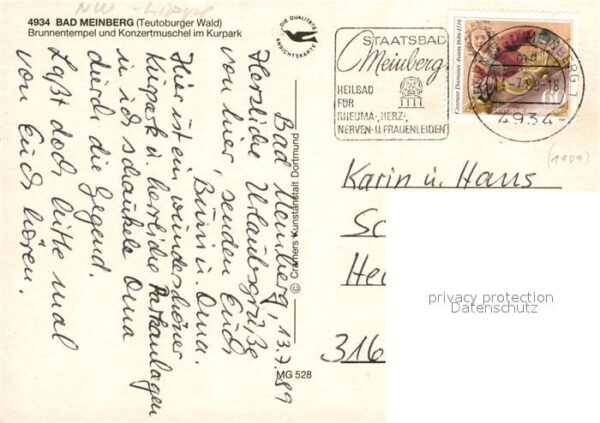 NW - Lippe
4934 BAD MEINBERG (Teutoburger Wald)
Brunnentempel und Konzertmuschel im Kurpark
DIE QUALITÄTS
ANSICHTSKARTE
STAATSBAD
Meinberg
HEILBAD
FÜR
RHEUMA-, HERZ-,
NERVEN- U. FRAUENLEIDEN
Cosmas Damian Asam 1686-1739
60
DEUTSCHE
BAD MEINBERG 1
-7.89-18
4934
(1989)
Bad Meinberg, 13.7.89
Herzliche Urlaubsgrüße
von hier, senden Euch
Büni u. Oma.
Hier ist ein wunderschöner
Kurpark u. herrliche Parkanlagen
u. ich schaukele Oma
durch die Gegend.
Laßt doch bitte mal
von Euch hören.
© Cramers Kunstanstalt Dortmund
MG 528
Karin u. Hans
Sc
He
316
privacy protection
Datenschutz